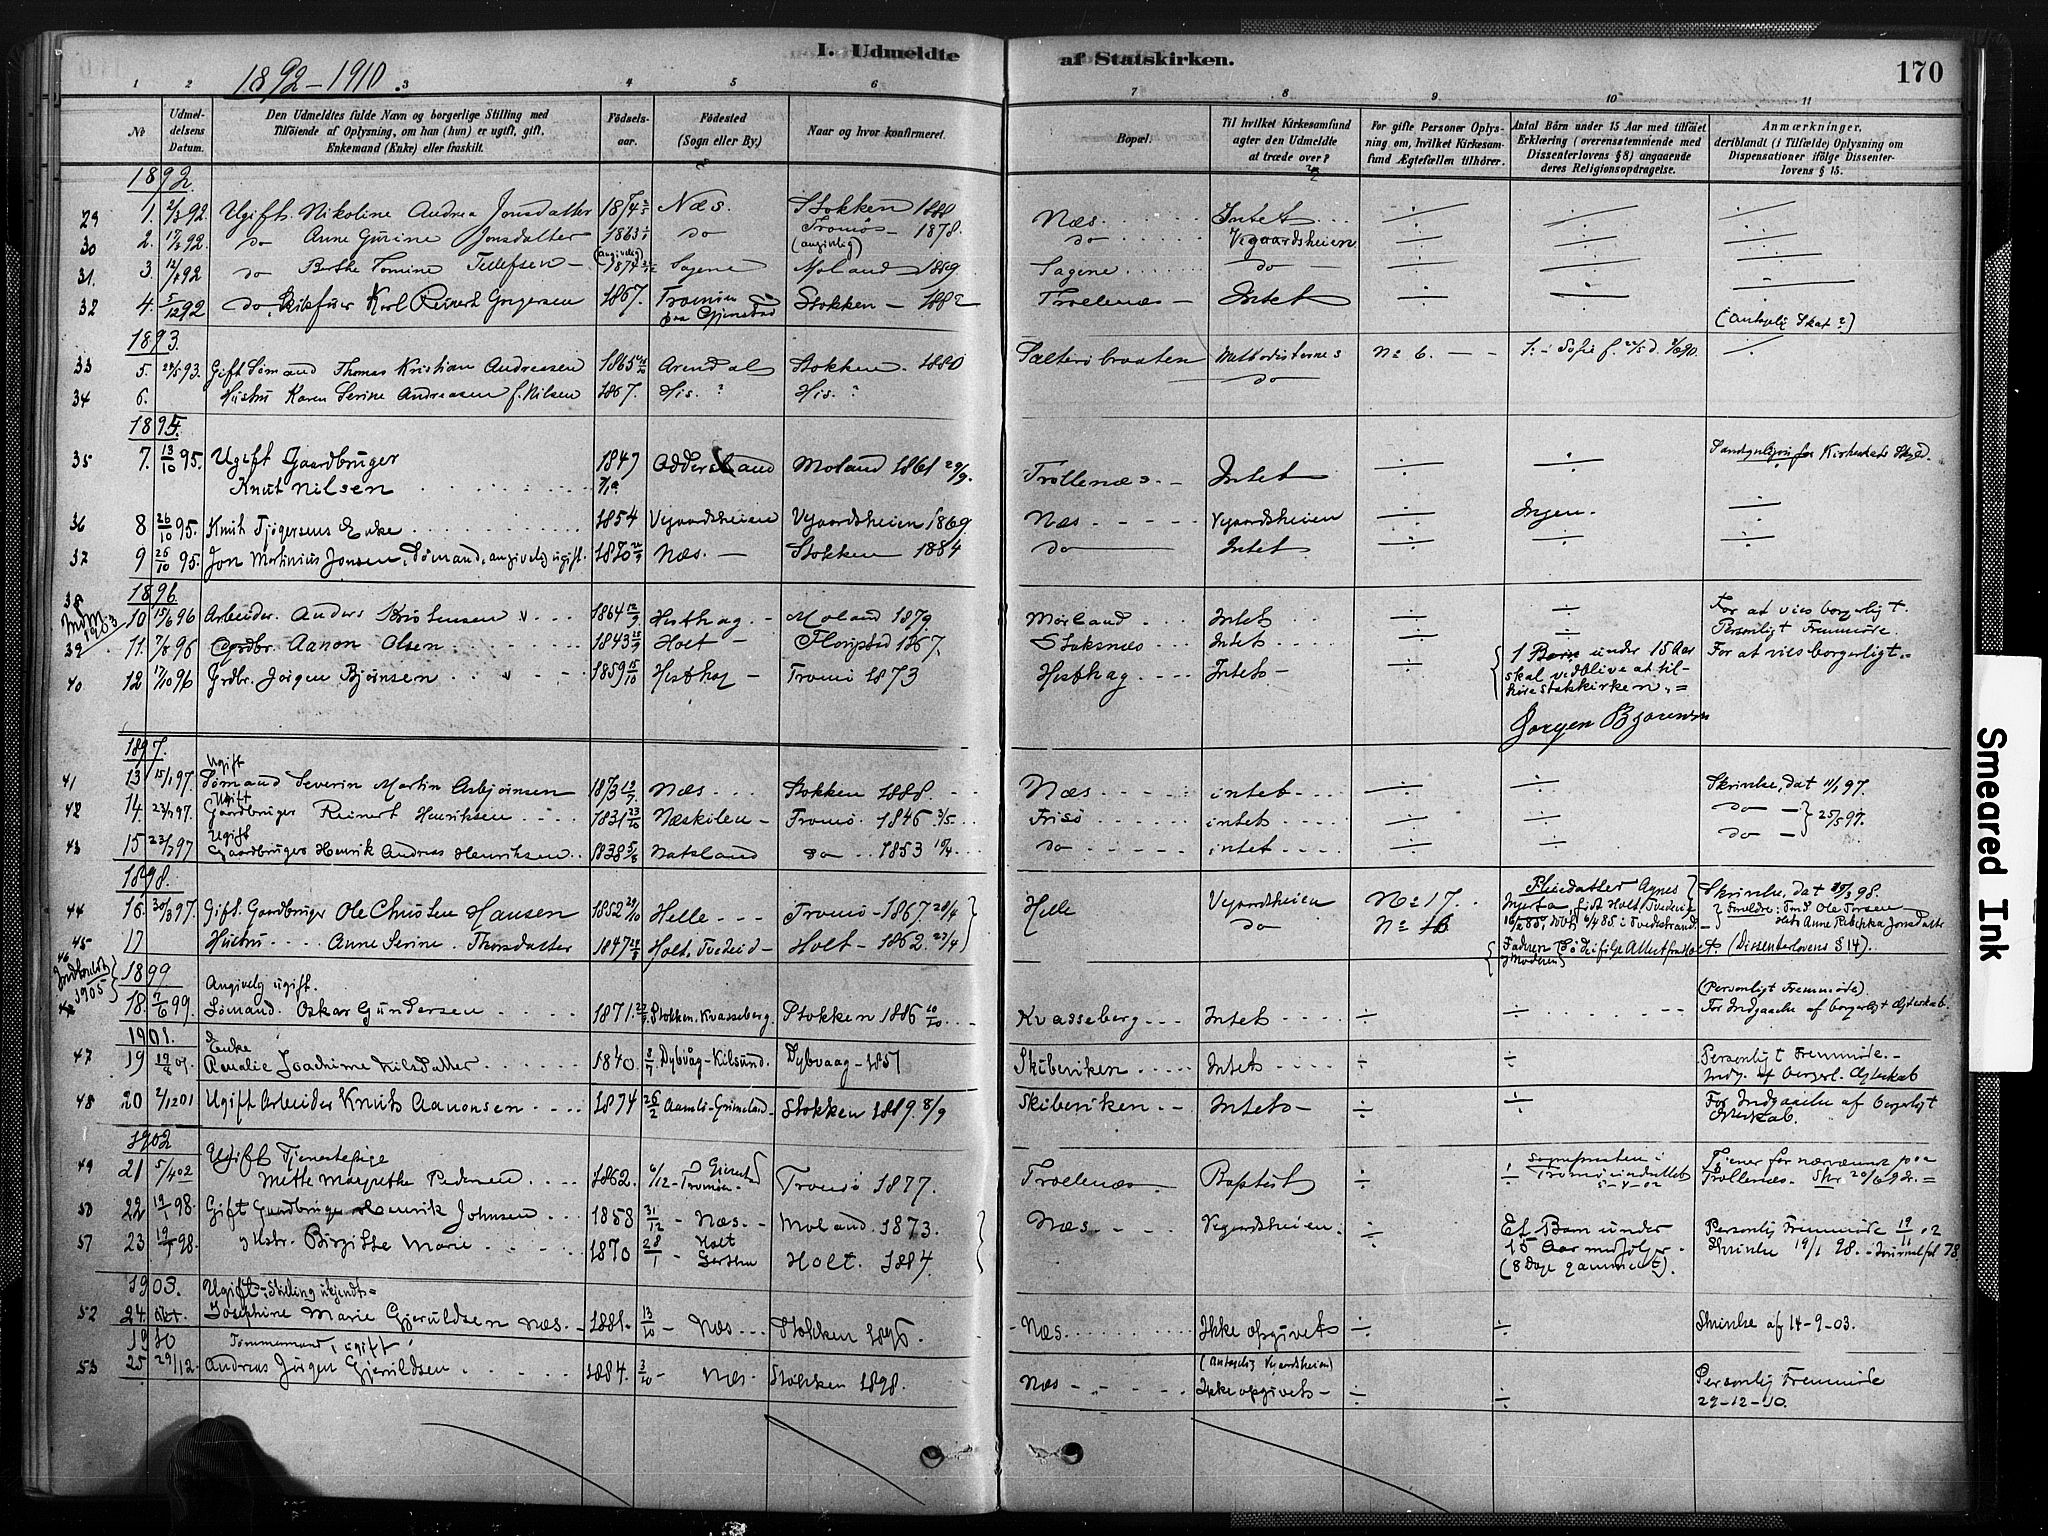 I. Udmeldte af Statskirken.
170
1892-1910.
1 2 3 4 5 6 7 8 9 10 11
No
Udmeldelsens Datum.
Den Udmeldtes fulde Navn og borgerlige Stilling med Tilføiende af Oplysning, om han (hun) er ugift, gift, Enkemand (Enke) eller fraskilt.
Fødselsaar.
Fødested (Sogn eller By.)
Naar og hvor konfirmeret.
Bopæl.
Til hvilket Kirkesamfund agter den Udmeldte at træde over?
For gifte Personer Oplysning om, hvilket Kirkesamfund Ægtefællen tilhører.
Antal Børn under 15 Aar med tilføiet Erklæring (overensstemmende med Dissenterlovens § 8) angaaende deres Religionsopdragelse.
Anmærkninger, deriblandt (i Tilfælde) Oplysning om Dispensationer ifølge Dissenterlovens § 15.
1892.
29 1. 2/3 92. Ugift. Nikoline Andrea Jonsdatter 1874 Næs. Stokken 1888 Næs. Intet
30 2. 17/3 92. do Anne Gurine Jonsdatter 1863 do Tromøs - 1878. (angivlig) do Vegaardsheien
31. 3. 12/ 92 do Berthe Tomine Tellefsen - (angivelig) 1874 Sagene Moland - 1889 Sagene do
32 4. 5/12 92 do, Skibsfører Karl Reinert Gregersen 1867. Tromøen paa Gjenestad Stokken - 1882 Trollenæs - Intet ÷ (Antagelig Skat?)
1893.
33 5 24/1 93. Gift Sømand Thomas Kristian Andreasen 1865 Arendal Stokken. 1880 Sæteribraaten Methodisternes No 6. - - 1: - Sofie f.
34 6. Hustru Karen Serine Andreasen f. Nilsen 1867. His. ? His. ? do
1895.
35 7. 13/10 95. Ugift Gaardbruger 1847 Adderstand Moland 1861 29/9. Trollenæs. - Intet ÷ ÷
Knut Nilsen
36 8 26/10 95. Knut Tjøgersens Enke 1854 Vegaardsheien Vegaardsheien 1869 Næs Vegaardsheien ÷ Ingen. ÷
37 9 26/10 95. Jon Martinius Jonsen, Sømand, angivelig ugift. 1870 Næs. - Stokken 1884 do Intet ÷ ÷ ÷
1896.
38 10 15/6 96 Arbeider. Anders Kristensen 1864 12/9 Hesthag - Moland 1879 Mørland Intet ÷ ÷ For at vies borgerligt. Personligt Fremmøde.
Indm 1903
39 11. 7/8 96 Grdbr. Aanon Olsen 1843 Holt - Floristad 1867. Staksnæs Intet ÷ ÷
40 12 17/10 96 Grdbr. Jørgen Bjørnsen 1859 15/10 Hesthag - Tromø 1873 Hesthag Intet - ÷ 1 Barn under 15 Aar skal vedblive at tilhøre Statskirken. = For at vies borgerligt. =
Jørgen Bjørensen
1897.
41 13 15/1 97. Ugift Sømand Severin Martin Asbjørnsen 1873 Næs Stokken 1888. Næs intet ÷ ÷ Skrivelse, dat 11/1 97.
42 14. 23/ 97. Ugift Gaardbruger Reinert Henriksen 1831 23/10 Næskilen - Tromø. 1846 3/5 Frisø intet ÷ ÷ do - } 25/5 97.
43 15 23/ 97 Ugift Gaardbruger Henrik Andreas Henriksen 1838 5/8 Natsland do 1853 17/4 do intet ÷ ÷ do -
1898.
44 16. 30/3 97. Gift. Gaardbruger Ole Christen Hansen 1852 29/10 Helle - - - Tromø - 1867. 28/4 Helle Vegaardsheien No 17. Pleiedatter Agnes Skrivelse, dat 98.
45 17 Hustru Anne Serine Thorsdatter 1847 Holt. Tvedeid - Holt - 1862. 27/4 do No 16 (Dissenterlovens § 14).
46 Indtraadt 1905
1899
18. 7/6 99. Angivelig ugift. Sømand. Oskar Gundersen 1871. Stokken. Kvasseberg. Stokken 1886 10/10 Kvasseberg Intet ÷ ÷ (Personligt Fremmøde). For Indgaaelse af borgerligt Ægteskab.
1901.
47 19 19/6 01. Enke Amalie Joachime Nilsdatter 1840. 8/7 Dybvåg - Kilsund. Dybvaag - 1857 Skiberviken Intet ÷ ÷ Personligt Fremmøde. - Indg. af borgerl. Ægteskab
48 20 2/12 01 Ugift Arbeider Knut Aanonsen 1874 26/2 Aamli - Grimeland - Stokken 1889 8/9 Skiberviken - Intet - ÷ ÷ For Indgaaelse af borgerligt Ægteskab.
1902
49 21 5/4 02 Ugift Tjenestepige Mette Margrethe Pedersen 1862. 6/12 - Gjerestad Tromøen - Tromø 1877. Trollenæs Baptist ÷ Sognepresten i Tromø indmeldt 5-4-02 Tjener for nærværende paa Trollenæs. Skr
50 22 19/1 98. Gift Gaardbruger Henrik Johnsen 1858 31/12 - Næs. - Moland. 1873. Næs Vegaardsheien ÷ Et Barn under 15 Aar medfølger. (8 Dage gammelt). Personlig Fremmøde 19/11 02 Skrivelse 19/1 98.
51 23 19/1 98. Hstr. Birgitte Marie 1870 28/1 Holt Holt. 1884. ÷
1903.
52 24. Ugift - Stilling ukjendt = Josephine Marie Gjeruldsen Næs. - 1881. 13/10 - Næs Stokken 1896 Næs Ikke opgivet ÷ ÷ Skrivelse af 14-9-03.
1910
53 25 29/12. Tømmermand, ugift Andreas Jørgen Gjeruldsen 1884. 3/10 - Næs - Stokken 1898. Næs (Antagelig Vegaardsheien) Ikke opgivet - ÷ ÷ Personlig Fremmøde 29-12-10.
Smeared Ink